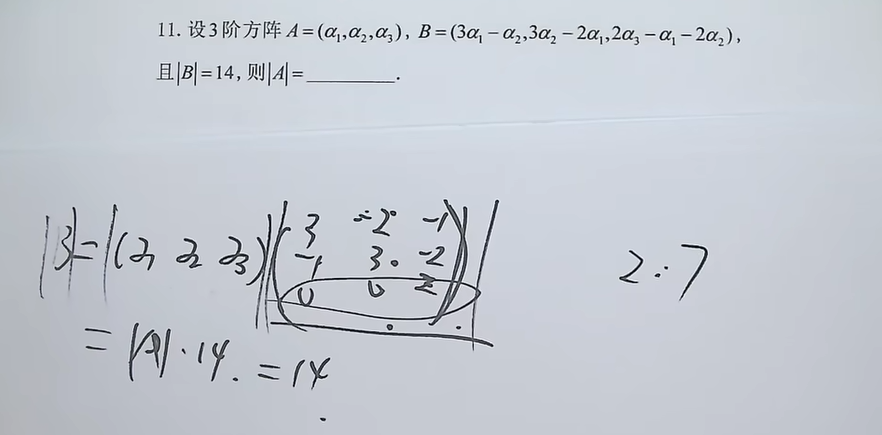 11. 设3阶方阵 A=(α₁,α₂,α₃), B=(3α₁−α₂,3α₂−2α₁,2α₃−α₁−2α₂),
且|B|=14, 则|A|=________.
|B|=|(α₁ α₂ α₃)||(3 −2 −1
−1 3 −2
0 0 2)|
2·7
=|A|·14.=14